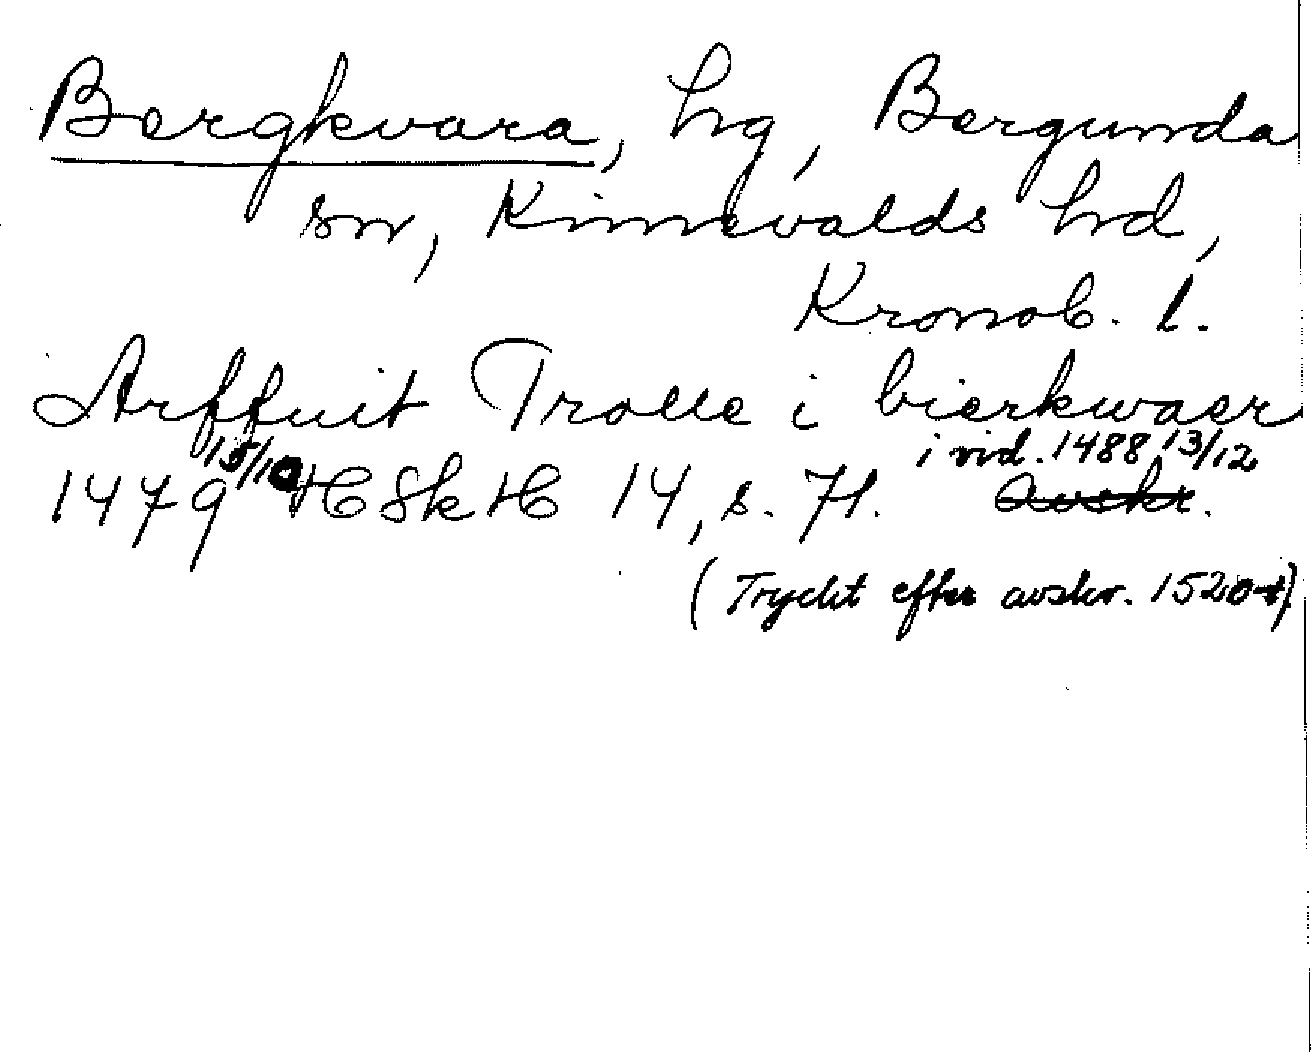 Bergkvara, hg, Bergunda
sn, Kinnevalds hd,
Kronob. l.
Arffuit Trolle i bierkwaer
1479 15/10 HSkH 14, s. 71. i vid. 1488 13/12 avskr.
(Tryckt efter avskr. 1520-t)